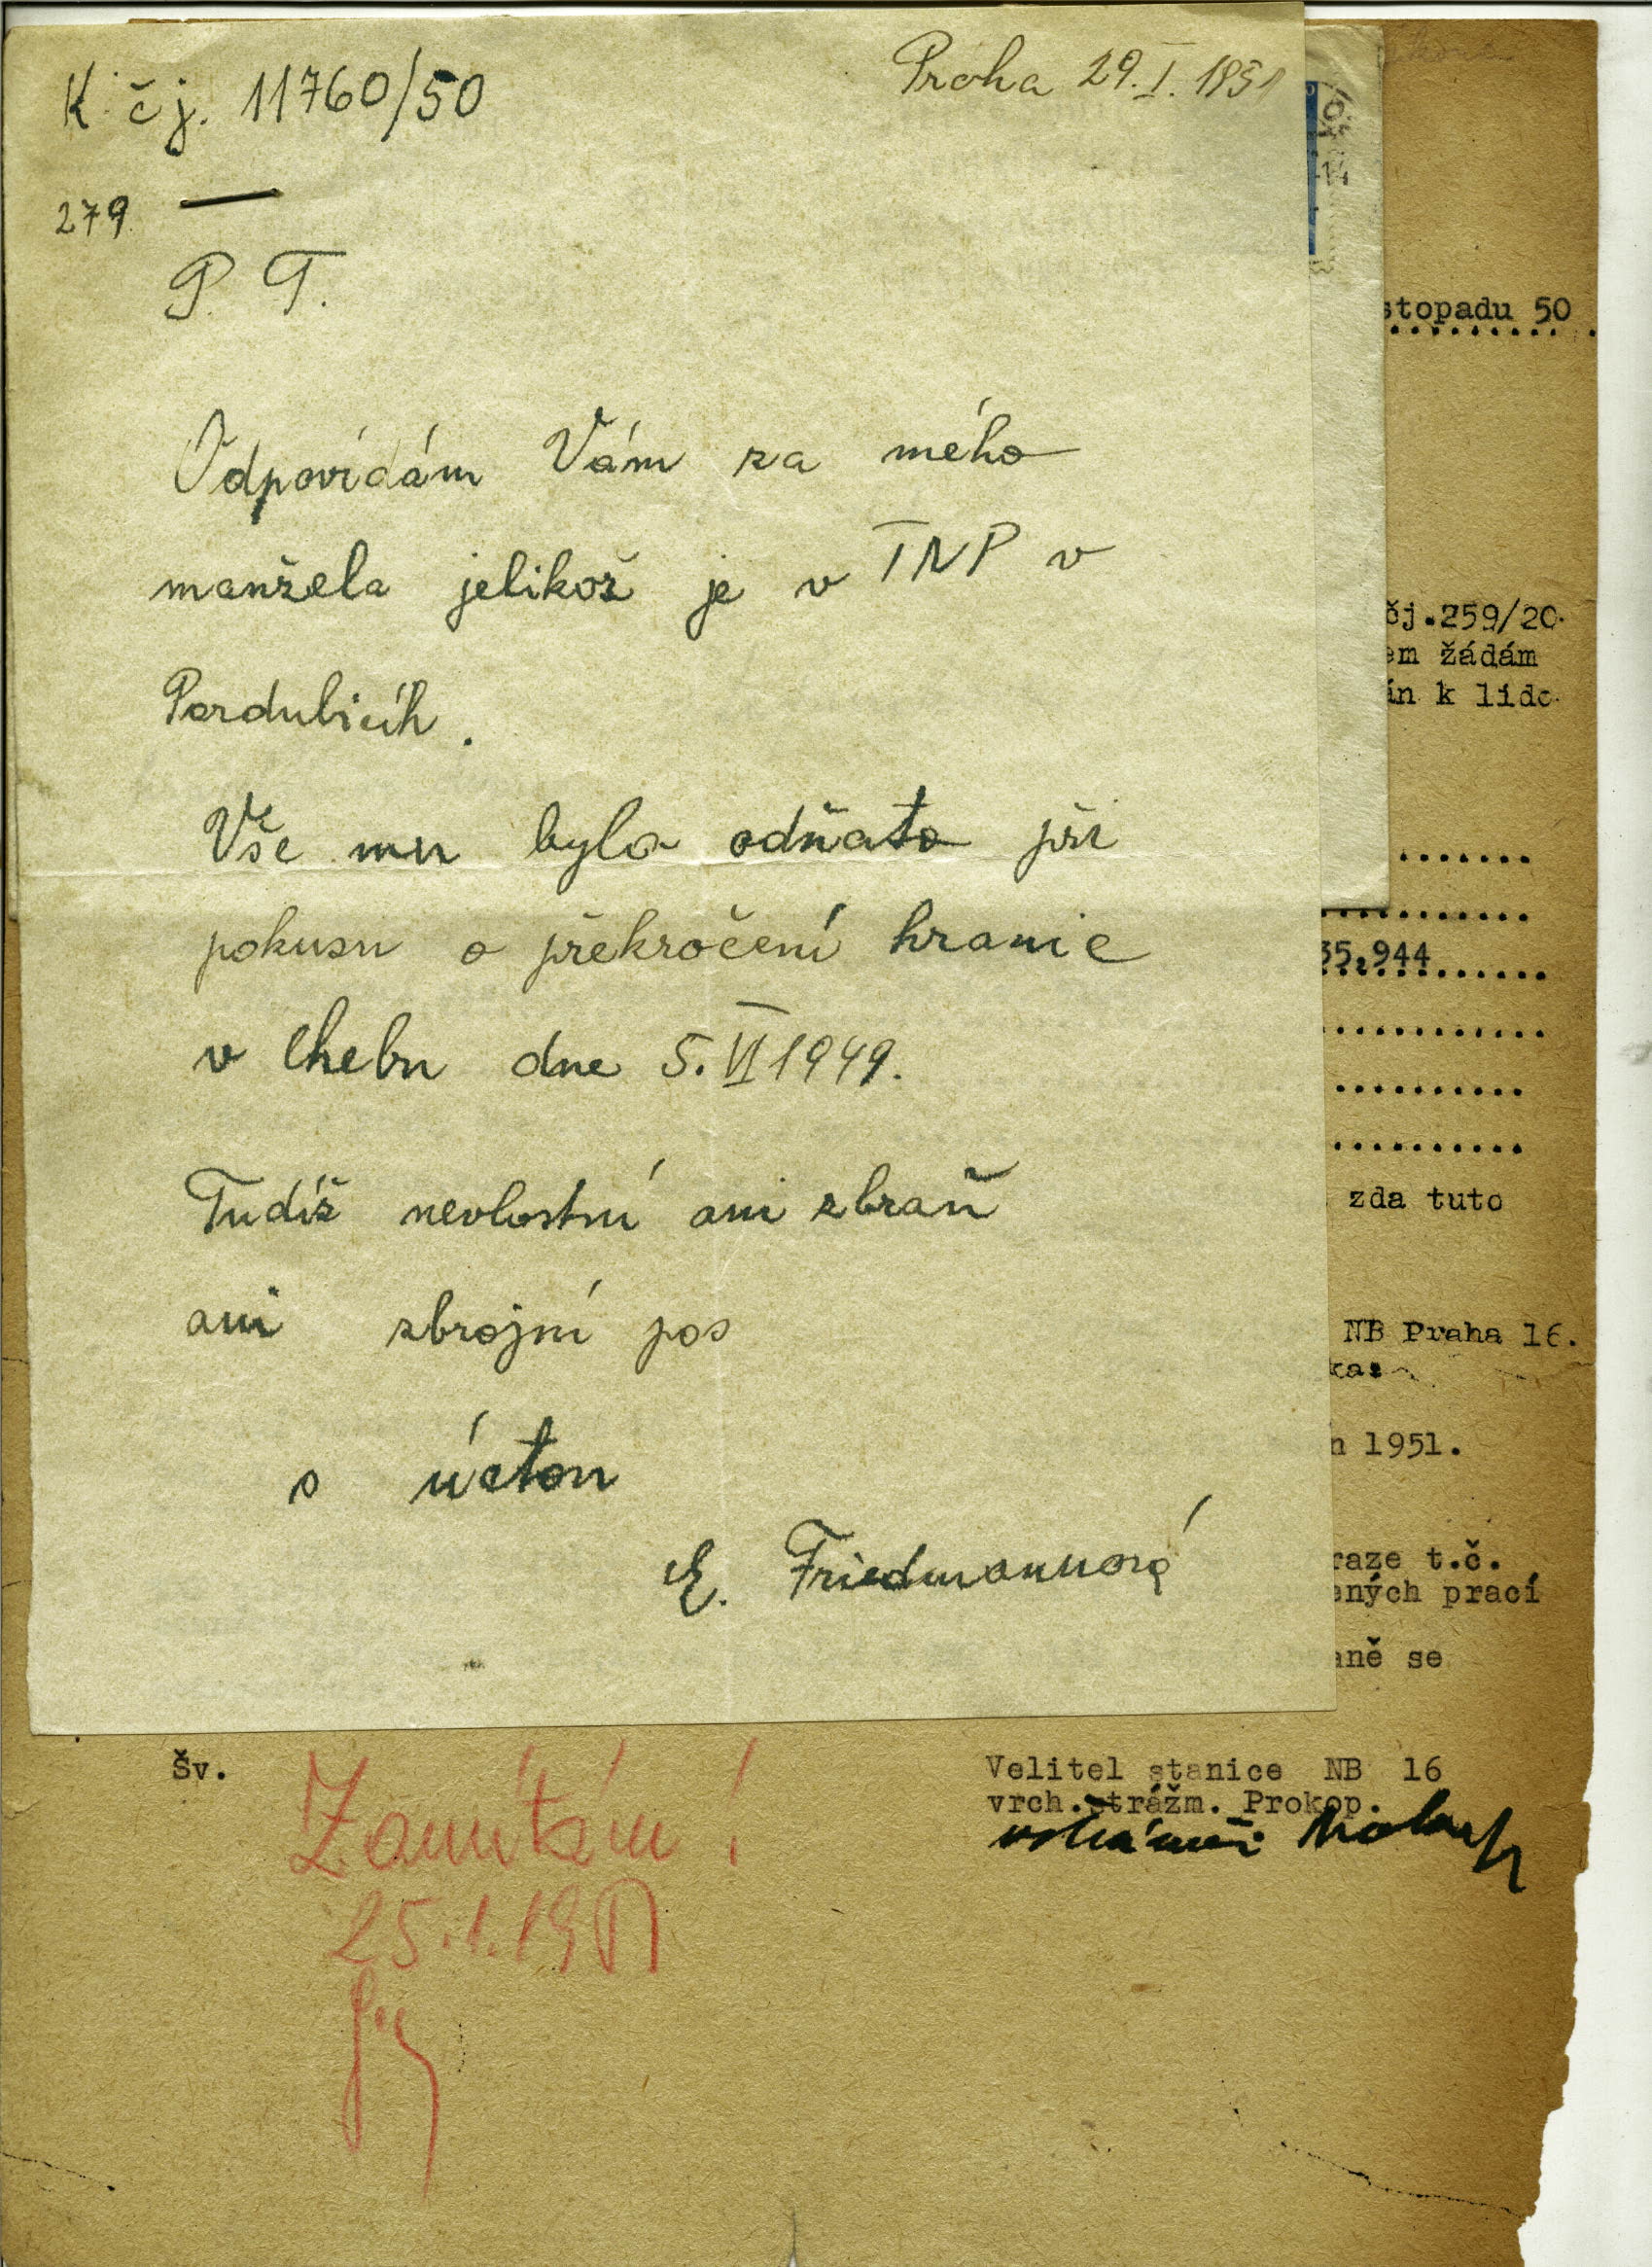 K čj. 11760/50
Praha 29. I. 1951
279
P. T.
Odpovídám Vám za mého
manžela jelikož je v TNP v
Pardubicíh.
Vše mu bylo odňato při
pokusu o překročení hranic
v Chebu dne 5. VI 1949.
Tudíž nevlastní ani zbraň
ani zbrojní pas
s úctou
E. Friedmannová
14
stopadu 50
čj.259/20
em žádám
án k lido
35,944
zda tuto
NB Praha 16.
ka:
n 1951.
raze t.č.
ených prací
aně se
Šv.
Velitel stanice NB 16
vrch.strážm. Prokop.
Zamítám!
25.1.1951